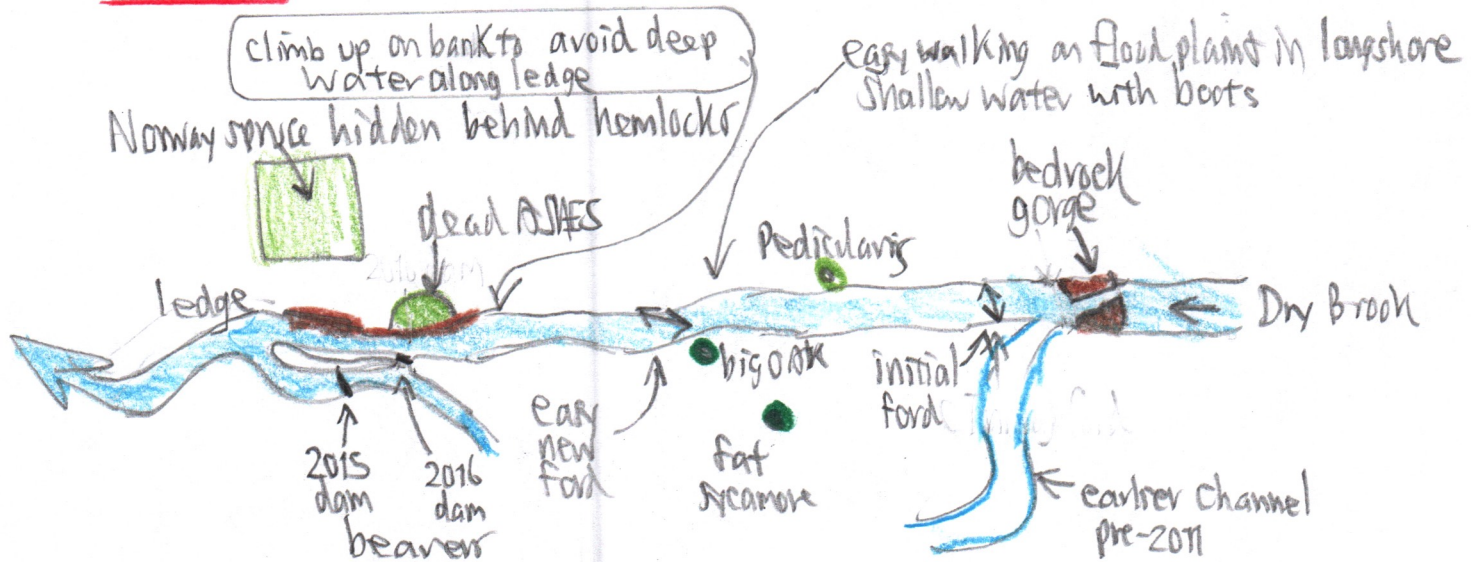 climb up on bank to avoid deep
water along ledge
easy walking on flood plain + in longshore
shallow water with boots
Norway spruce hidden behind hemlocks
bedrock
gorge
dead ASHES
Pedicularis
ledge
Dry Brook
big OAK
initial
ford
easy
new
ford
2015
dam
2016
dam
beavers
fat
sycamore
earlier channel
pre-2011